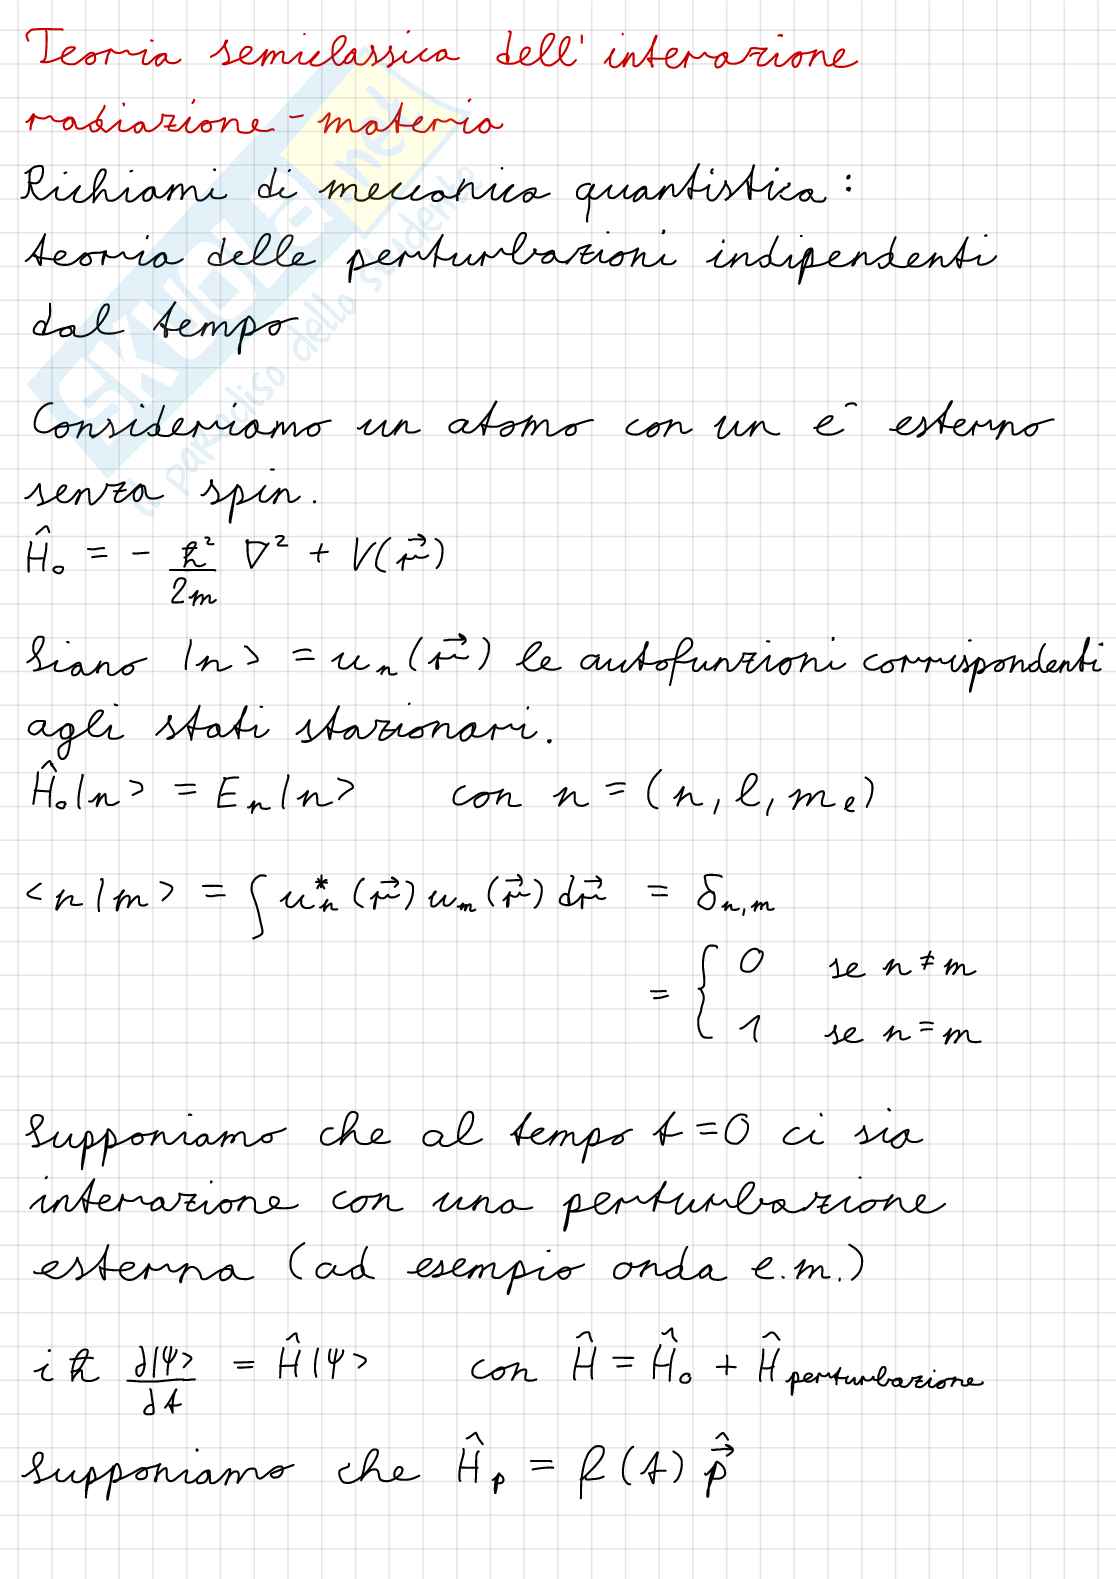 Teoria semiclassica dell'interazione
radiazione-materia
Richiami di meccanica quantistica:
teoria delle perturbazioni indipendenti
dal tempo
Consideriamo un atomo con un e⁻ esterno
senza spin.
Ĥ₀ = - ħ²/2m ∇² + V(r⃗)
Siano |n> = uₙ(r⃗) le autofunzioni corrispondenti
agli stati stazionari.
Ĥ₀|n> = Eₙ|n> con n = (n, l, mₑ)
<n|m> = ∫ uₙ*(r⃗) uₘ(r⃗) dr⃗ = δₙ,ₘ
= { 0 se n ≠ m
1 se n = m
Supponiamo che al tempo t = 0 ci sia
interazione con una perturbazione
esterna (ad esempio onda e.m.)
iħ ∂|ψ>/∂t = Ĥ|ψ> con Ĥ = Ĥ₀ + Ĥ perturbazione
Supponiamo che Ĥₚ = f(t) p⃗̂
SKUOLA.net
il paradiso dello studente